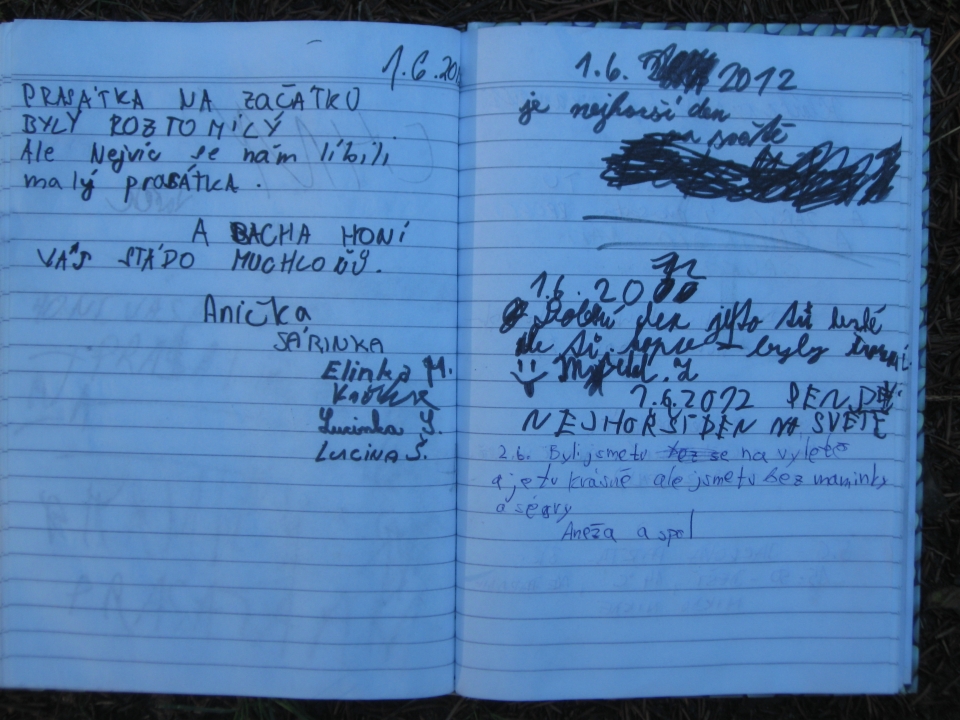 1.6.20
PRASÁTKA NA ZAČÁTKU
BYLY ROZTOMILÝ
Ale Nejvíc se nám líbili
malý prasátka.
A BACHA HONÍ
VÁS STÁDO MUCHLOŇŮ.
Anička
SÁRINKA
Elinka M.
Lucinka J.
Lucina Š.
1.6. 2012
je nejhorší den
na světě
12
1.6.20
den
ale byly
1.6.2012 DEN DĚ
NEJHORŠÍ DEN NA SVĚTĚ
2.6. Byli jsme tu se na výletě
a je tu krásně ale jsme tu bez maminky
a ségry
Aneža a spol